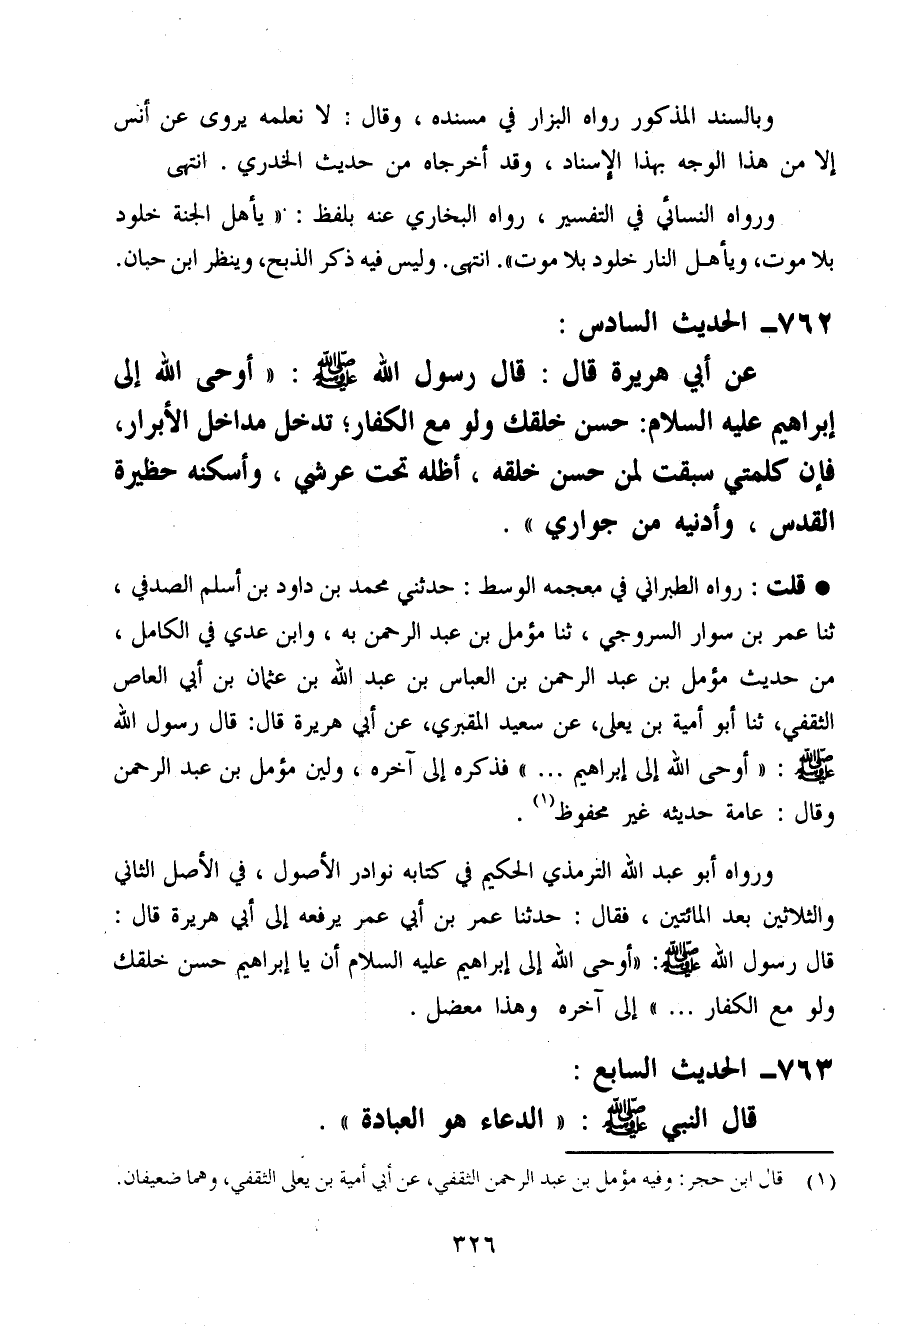 وبالسند المذكور رواه البزار في مسنده ، وقال : لا نعلمه يروى عن أنس
إلا من هذا الوجه بهذا الإسناد ، وقد أخرجاه من حديث الخدري . انتهى
ورواه النسائي في التفسير ، رواه البخاري عنه بلفظ : « يأهل الجنة خلود
بلا موت، ويأهل النار خلود بلا موت». انتهى. وليس فيه ذكر الذبح، وينظر ابن حبان.
٧٦٢ـ الحديث السادس :
عن أبي هريرة قال : قال رسول الله ﷺ : « أوحى الله إلى
إبراهيم عليه السلام: حسن خلقك ولو مع الكفار؛ تدخل مداخل الأبرار،
فإن كلمتي سبقت لمن حسن خلقه ، أظله تحت عرشي ، وأسكنه حظيرة
القدس ، وأدنيه من جواري » .
● قلت : رواه الطبراني في معجمه الوسط : حدثني محمد بن داود بن أسلم الصدفي ،
ثنا عمر بن سوار السروجي ، ثنا مؤمل بن عبد الرحمن به ، وابن عدي في الكامل ،
من حديث مؤمل بن عبد الرحمن بن العباس بن عبد الله بن عثمان بن أبي العاص
الثقفي، ثنا أبو أمية بن يعلى، عن سعيد المقبري، عن أبي هريرة قال: قال رسول الله
ﷺ : « أوحى الله إلى إبراهيم ... » فذكره إلى آخره ، ولين مؤمل بن عبد الرحمن
وقال : عامة حديثه غير محفوظ(١) .
ورواه أبو عبد الله الترمذي الحكيم في كتابه نوادر الأصول ، في الأصل الثاني
والثلاثين بعد المائتين ، فقال : حدثنا عمر بن أبي عمر يرفعه إلى أبي هريرة قال :
قال رسول الله ﷺ: «أوحى الله إلى إبراهيم عليه السلام أن يا إبراهيم حسن خلقك
ولو مع الكفار ... » إلى آخره وهذا معضل .
٧٦٣ـ الحديث السابع :
قال النبي ﷺ : « الدعاء هو العبادة » .
(١) قال ابن حجر: وفيه مؤمل بن عبد الرحمن الثقفي، عن أبي أمية بن يعلى الثقفي، وهما ضعيفان.
٣٢٦